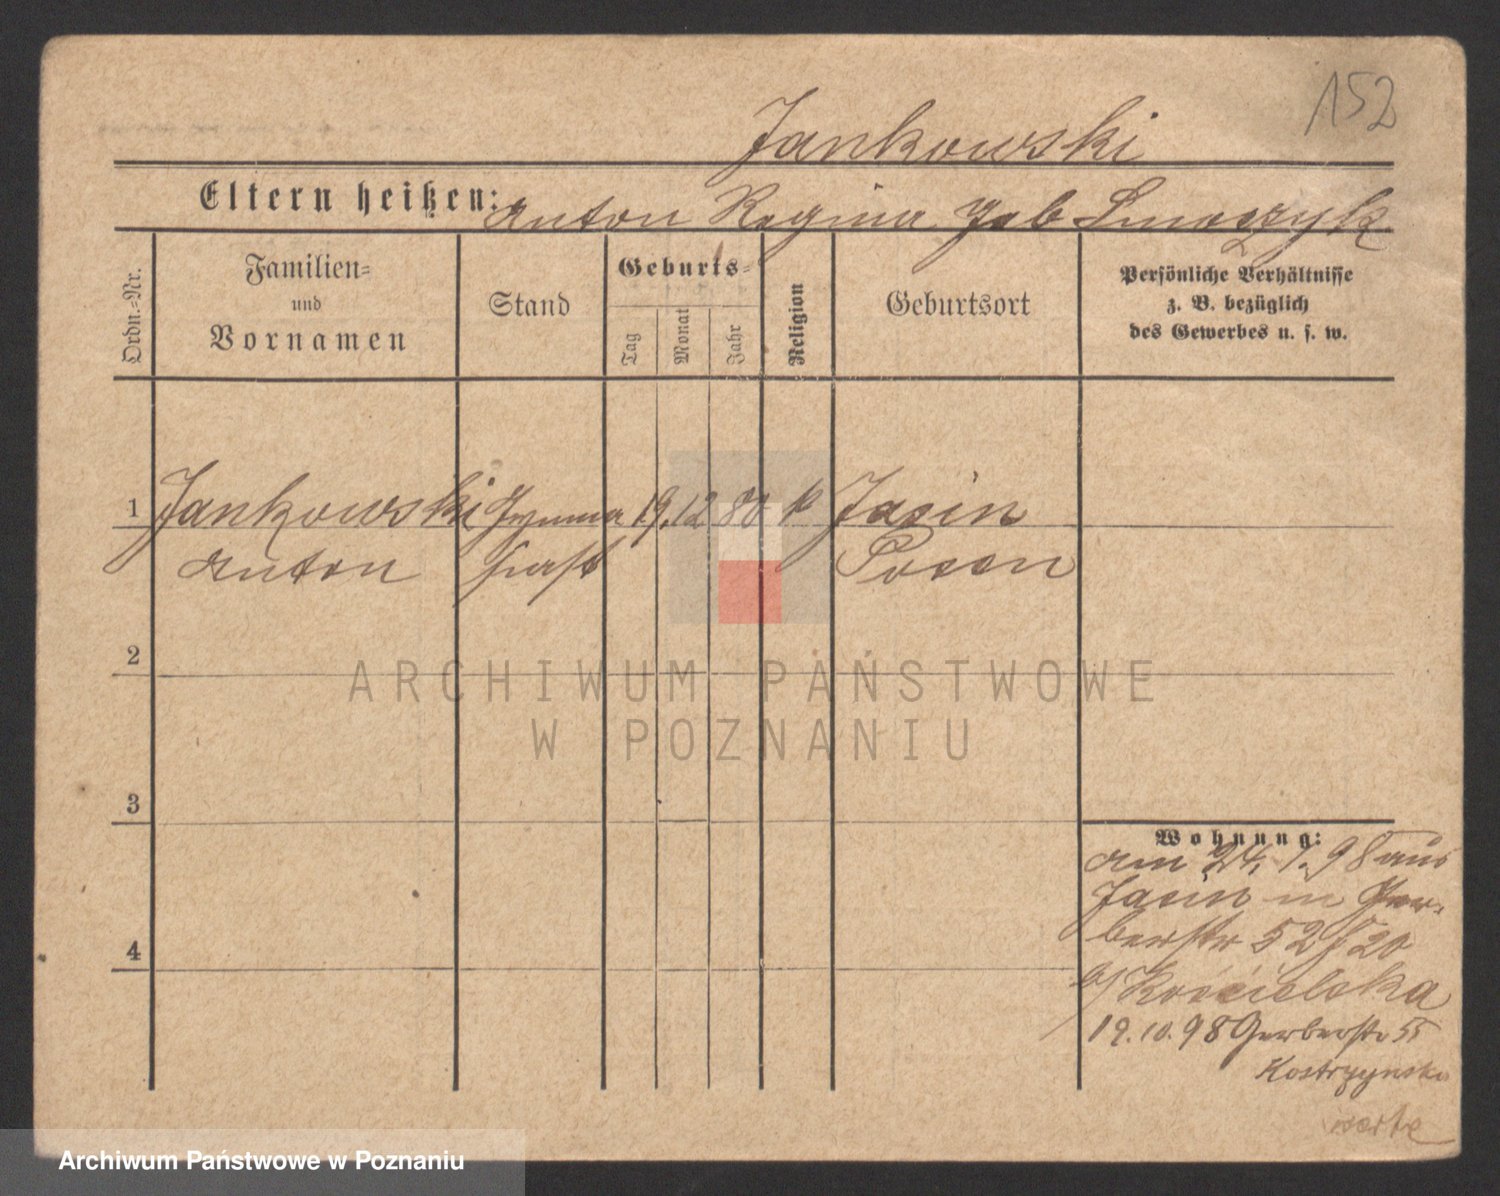 152
Jankowski
Eltern heißen: Anton Regina geb Smoczyk
Ordn.-Nr.
Familien-
und
Vornamen
Stand
Geburts-
Tag
Monat
Jahr
Religion
Geburtsort
Persönliche Verhältnisse
z. B. bezüglich
des Gewerbes u. s. w.
1 Jankowski Gymna 19. 12 80 k Jasin
Anton siast Posen
2
ARCHIWUM PAŃSTWOWE
W POZNANIU
3
Wohnung:
am 24. 1. 98 aus
Jasin in Ger-
berstr 52
4
b/ Kościelska
19. 10. 98 Gerberstr 55
Kostrzynska
Archiwum Państwowe w Poznaniu